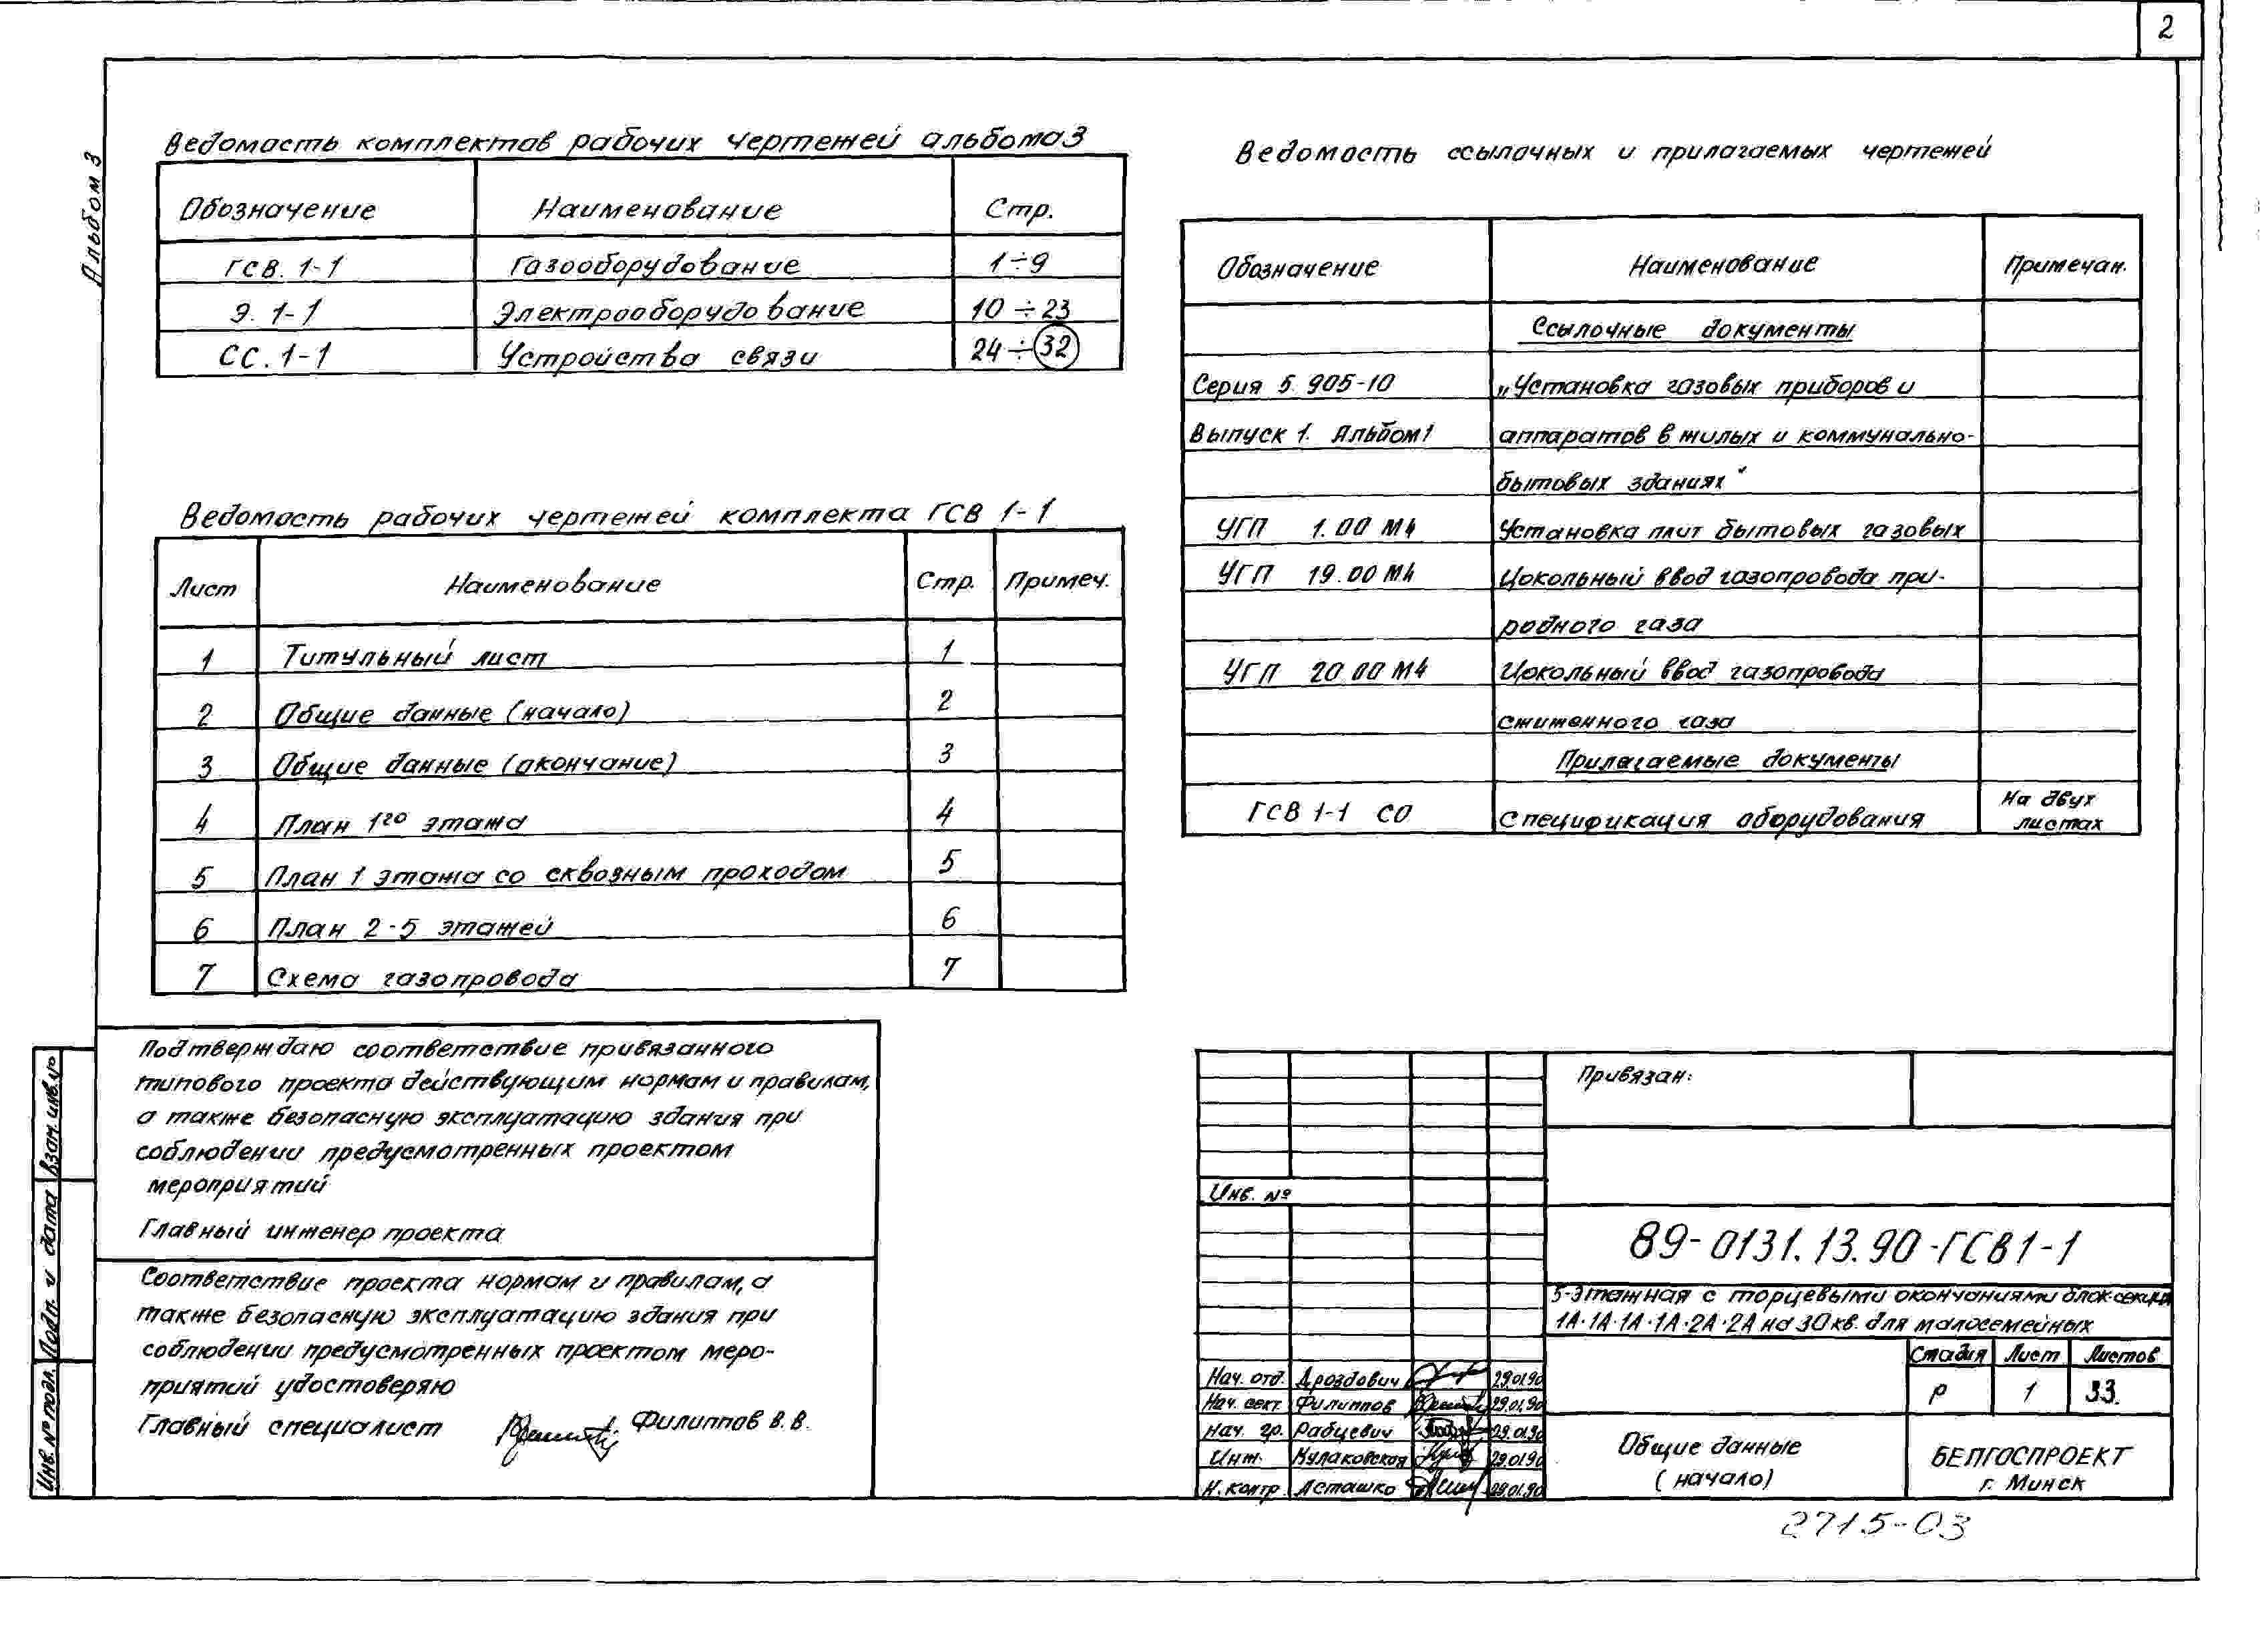 2
Альбом 3
Ведомость комплектов рабочих чертежей альбома 3
Обозначение Наименование Стр.
ГСВ. 1-1 Газооборудование 1÷9
Э. 1-1 Электрооборудование 10÷23
СС. 1-1 Устройства связи 24÷32
Ведомость рабочих чертежей комплекта ГСВ 1-1
Лист Наименование Стр. Примеч.
1 Титульный лист 1
2 Общие данные (начало) 2
3 Общие данные (окончание) 3
4 План 1го этажа 4
5 План 1 этажа со сквозным проходом 5
6 План 2-5 этажей 6
7 Схема газопровода 7
Ведомость ссылочных и прилагаемых чертежей
Обозначение Наименование Примечан.
Ссылочные документы
Серия 5.905-10 „Установка газовых приборов и
Выпуск 1. Альбом 1 аппаратов в жилых и коммунально-
бытовых зданиях"
УГП 1.00 М4 Установка плит бытовых газовых
УГП 19.00 М4 Цокольный ввод газопровода при-
родного газа
УГП 20.00 М4 Цокольный ввод газопровода
сжиженного газа
Прилагаемые документы
ГСВ 1-1 СО Спецификация оборудования На двух
листах
Подтверждаю соответствие привязанного
типового проекта действующим нормам и правилам,
а также безопасную эксплуатацию здания при
соблюдении предусмотренных проектом
мероприятий
Главный инженер проекта
Соответствие проекта нормам и правилам, а
также безопасную эксплуатацию здания при
соблюдении предусмотренных проектом меро-
приятий удостоверяю
Главный специалист Филиппов В.В.
Взам. инв. №
Подп. и дата
Инв. № подл.
Привязан:
Инв. №
89-0131.13.90-ГСВ1-1
5-этажная с торцевыми окончаниями блок-секция
1А-1А-1А-1А-2А-2А на 30 кв. для малосемейных
Стадия Лист Листов
Р 1 33.
Нач. отд. Дроздович 29.01.90
Нач. сект. Филиппов 29.01.90
Нач. гр. Рабцевич 29.01.90
Инж. Кулаковская 29.01.90
Н. контр. Асташко 29.01.90
Общие данные
(начало)
БЕЛГОСПРОЕКТ
г. Минск
2715-03